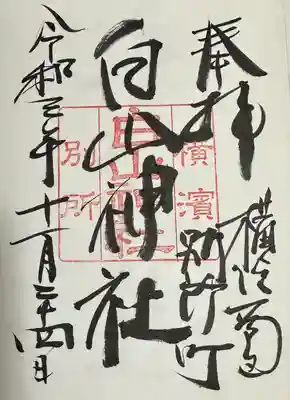 奉拝
横浜南
別所町
白山神社
令和三年十一月二十四日
横濱
別所